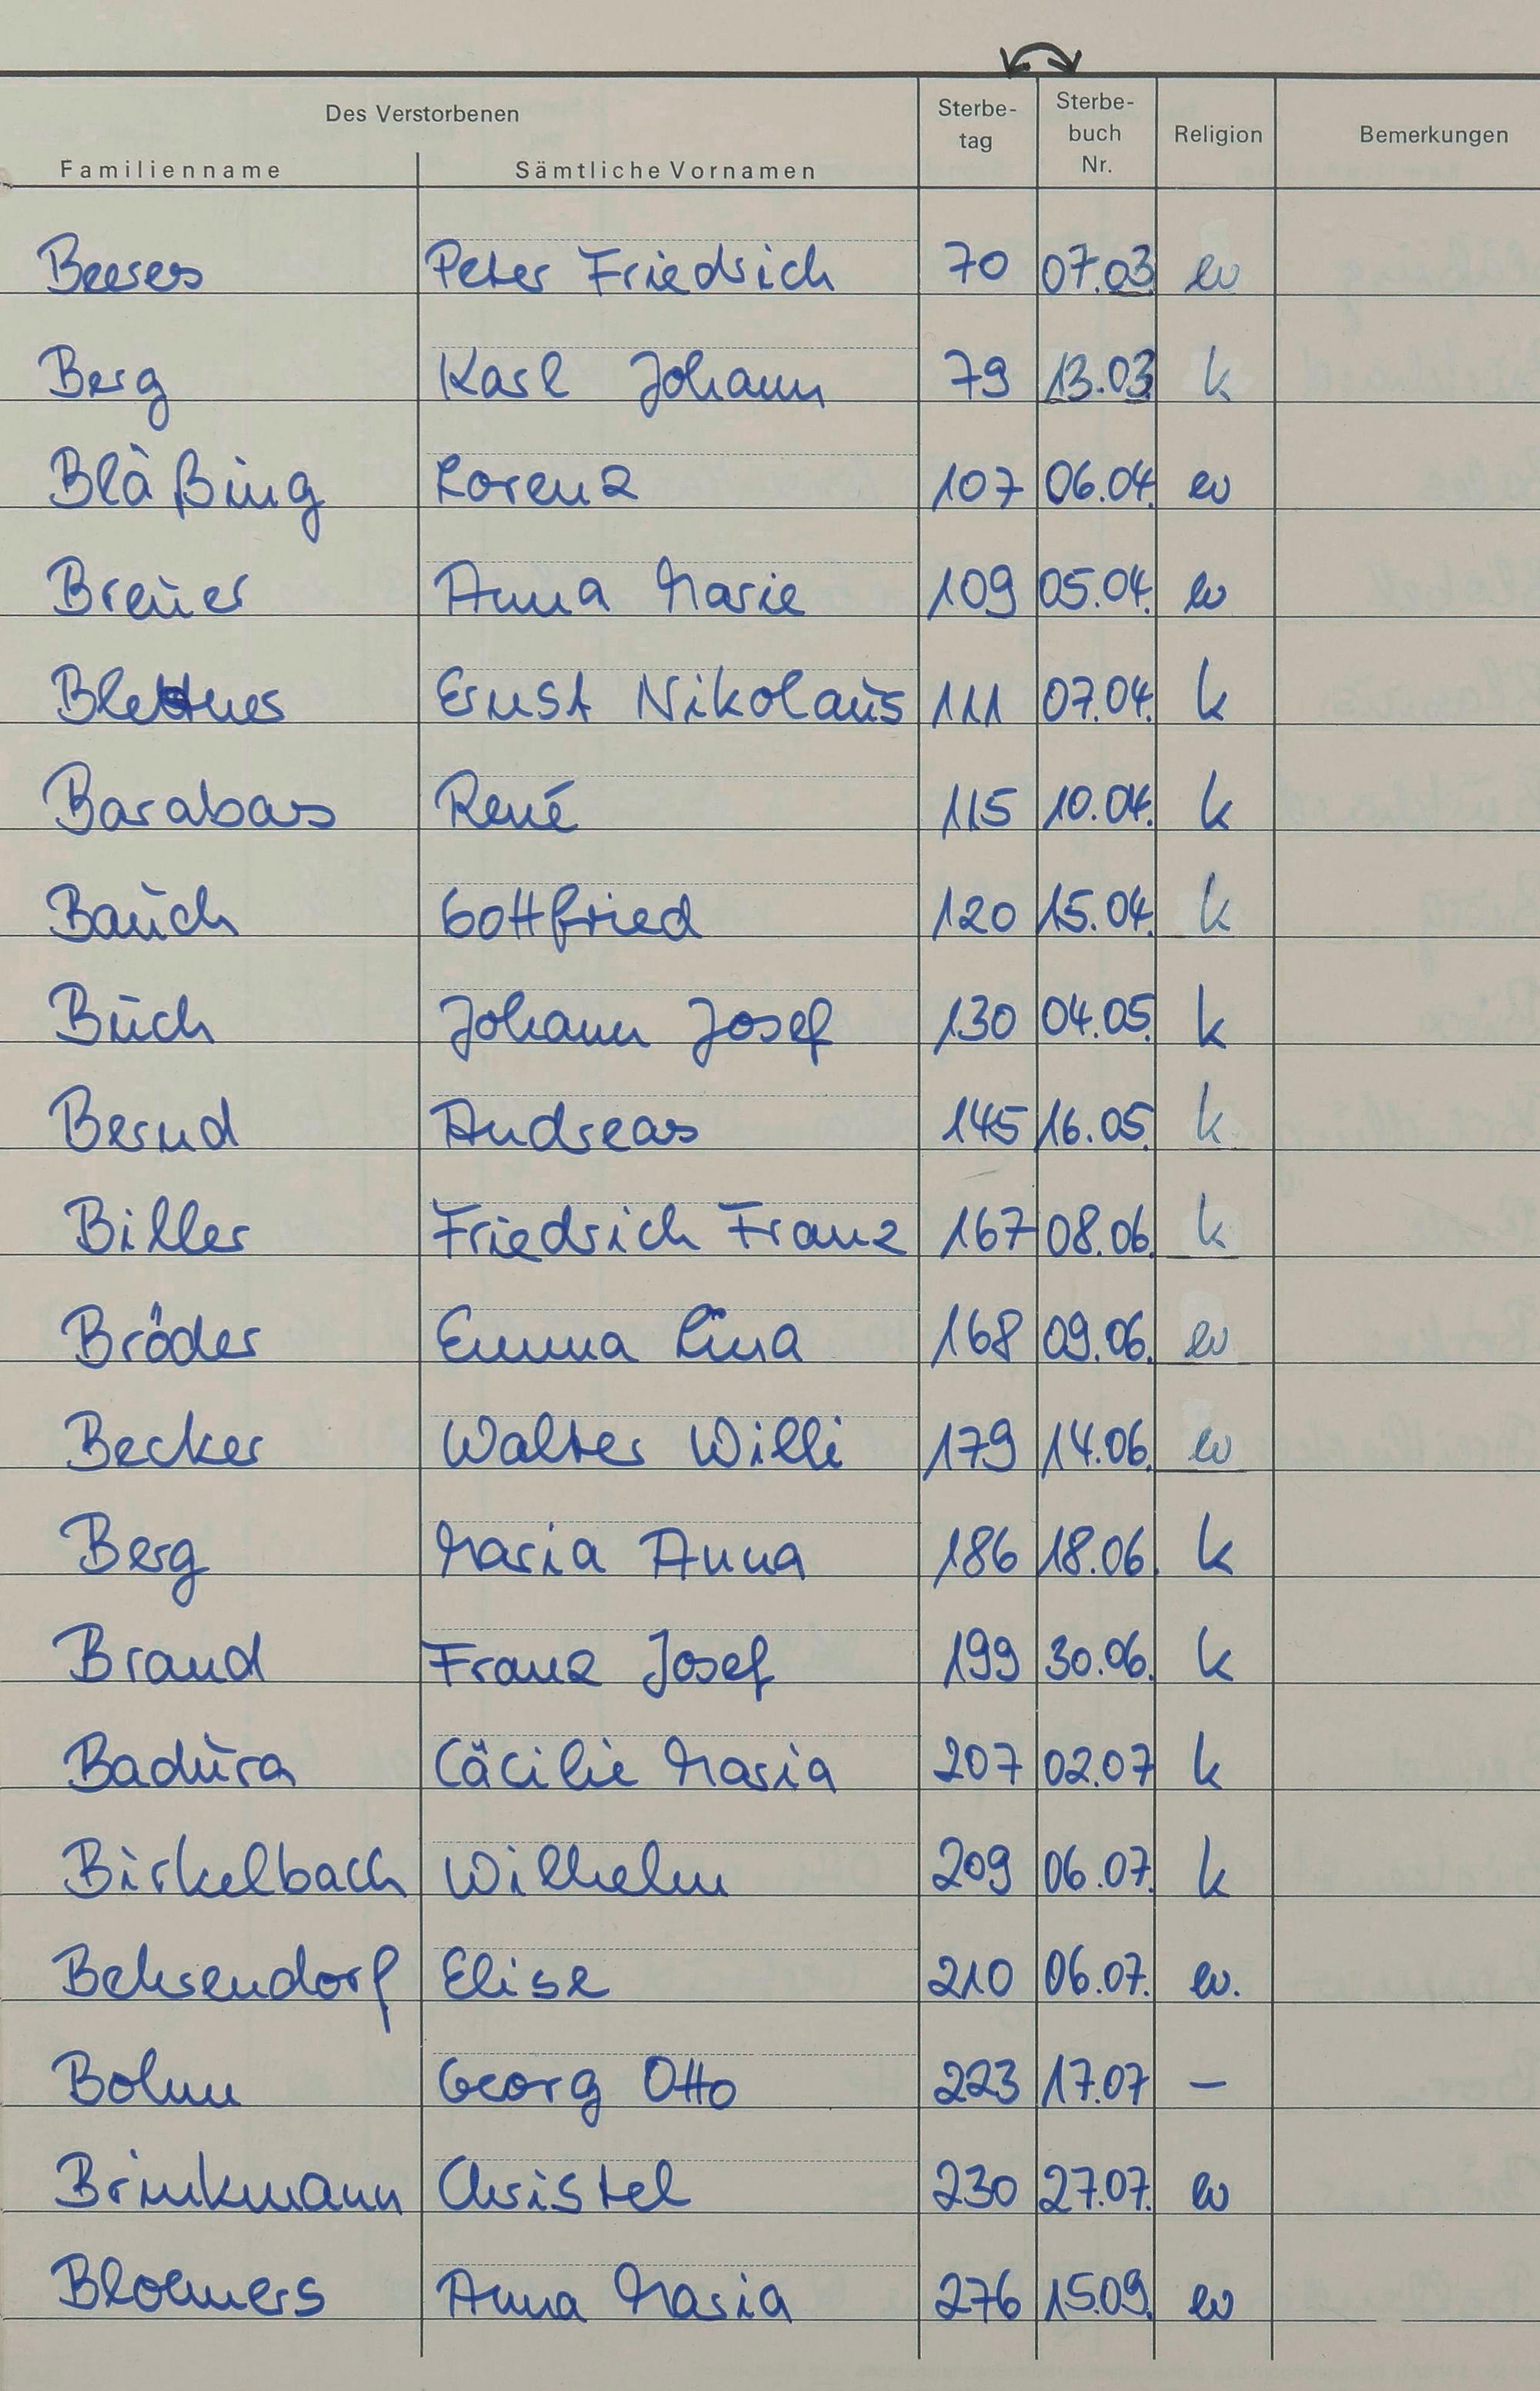 Des Verstorbenen
Familienname Sämtliche Vornamen Sterbe-tag Sterbe-buch Nr. Religion Bemerkungen
Beeres Peter Friedrich 70 07.03. ev
Berg Karl Johann 79 13.03 k
Bläßing Lorenz 107 06.04. ev
Breuer Anna Marie 109 05.04. ev
Blettner Ernst Nikolaus 111 07.04. k
Barabas René 115 10.04. k
Bauch Gottfried 120 15.04. k
Buch Johann Josef 130 04.05. k
Bernd Andreas 145 16.05. k
Biller Friedrich Franz 167 08.06. k
Bröder Emma Lina 168 09.06. ev
Becker Walter Willi 179 14.06. ev
Berg Maria Anna 186 18.06. k
Brand Franz Josef 199 30.06. k
Badura Cäcilie Maria 207 02.07 k
Birkelbach Wilhelm 209 06.07. k
Behrendorf Elise 210 06.07. ev.
Bohm Georg Otto 223 17.07 –
Brinkmann Christel 230 27.07. ev
Bloemers Anna Maria 276 15.09. ev